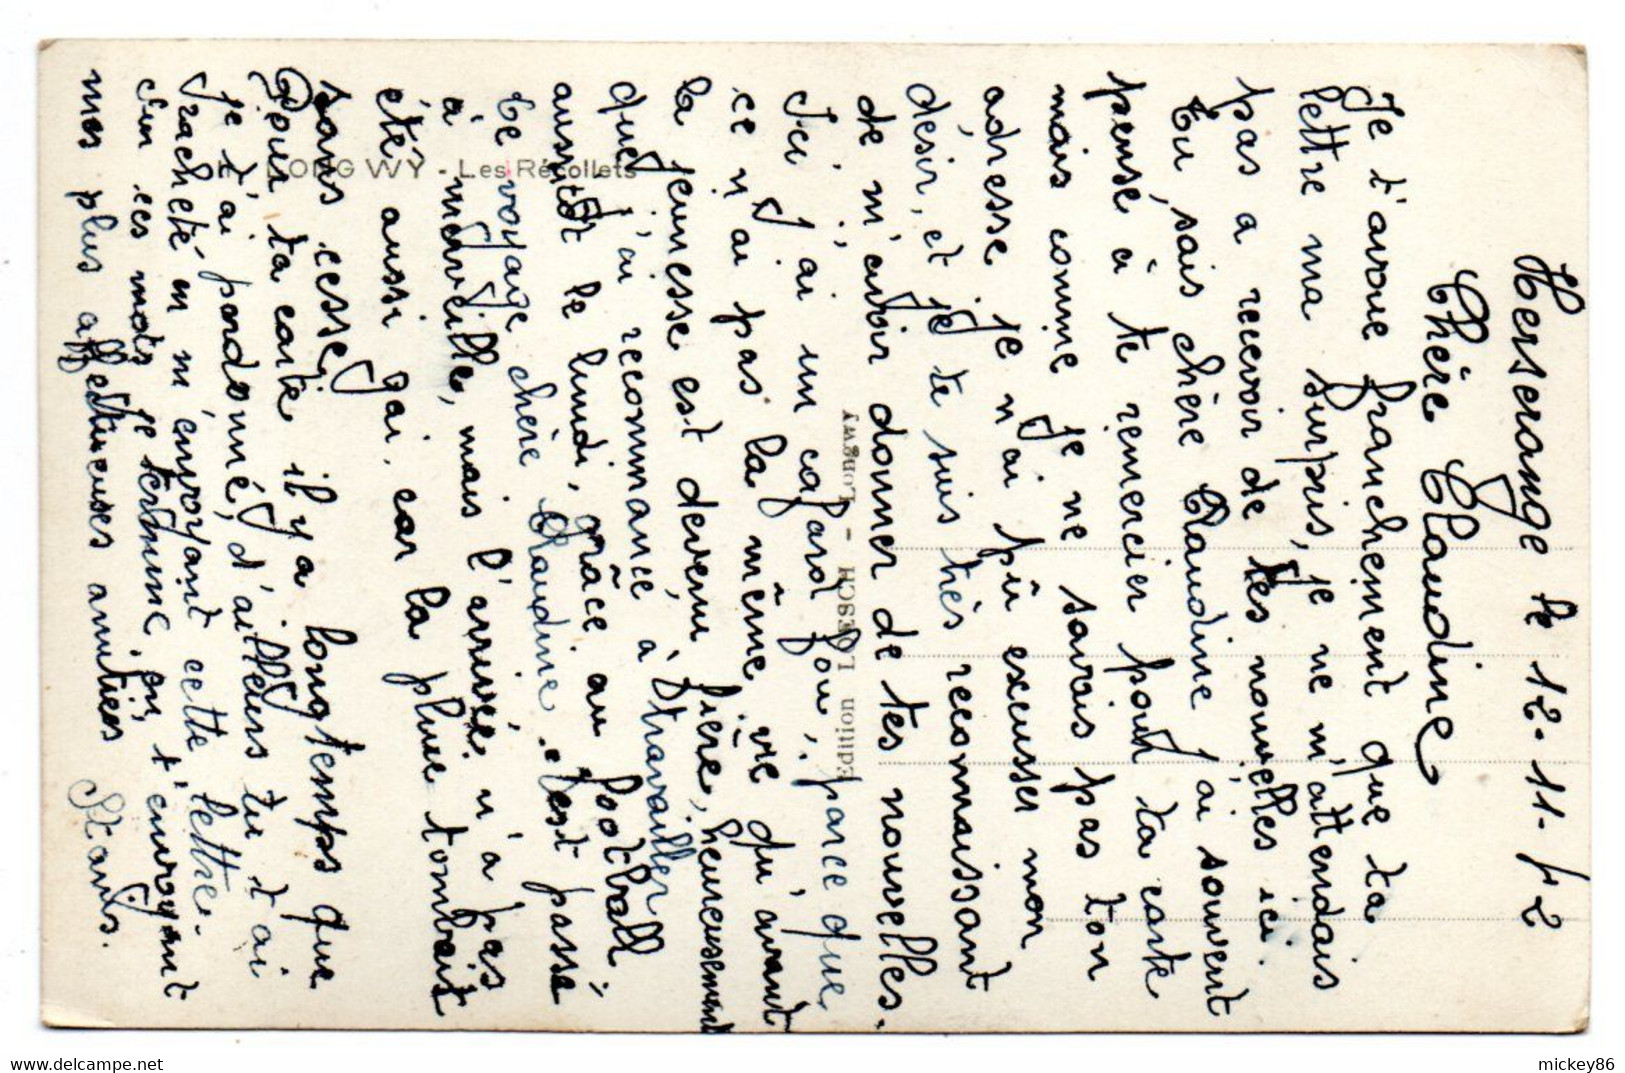 Herserange le 12.11.42
Chère Claudine
Je t'avoue franchement que ta
lettre ma surpris, je ne m'attendais
pas a recevoir de tes nouvelles ici.
tu sais chère Claudine j'ai souvent
pensé à te remercier pour ta carte
mais comme je ne savais pas ton
adresse je n'ai pû excusser mon
désir, et je te suis très reconnaissant
de m'avoir donner de tes nouvelles.
Ici j'ai un cafard fou, parce que
ce n'ai pas la même vie qu'avant
la jeunesse est devenu fière, heureusement
que j'ai recommancé à travailler
aussitôt le lundi, grâce au football;
le voyage chère Claudine c'est passé
à merveille, mais l'arrivée n'a pas
été aussi gai, car la pluie tombait
sans cesse;
Pour ta carte il y a longtemps que
je t'ai pardonné, d'ailleurs tu t'ai
racheté en m'envoyant cette lettre.
Sur ces mots je termine en t'envoyant
mes plus affectueuses amitiés
Stanis.
LONGWY - Les Récollets
Edition LOESCH - Longwy
mickey86